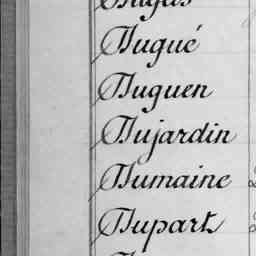 Dugas
Dugué
Duguen
Dujardin
Dumaine
Dupart